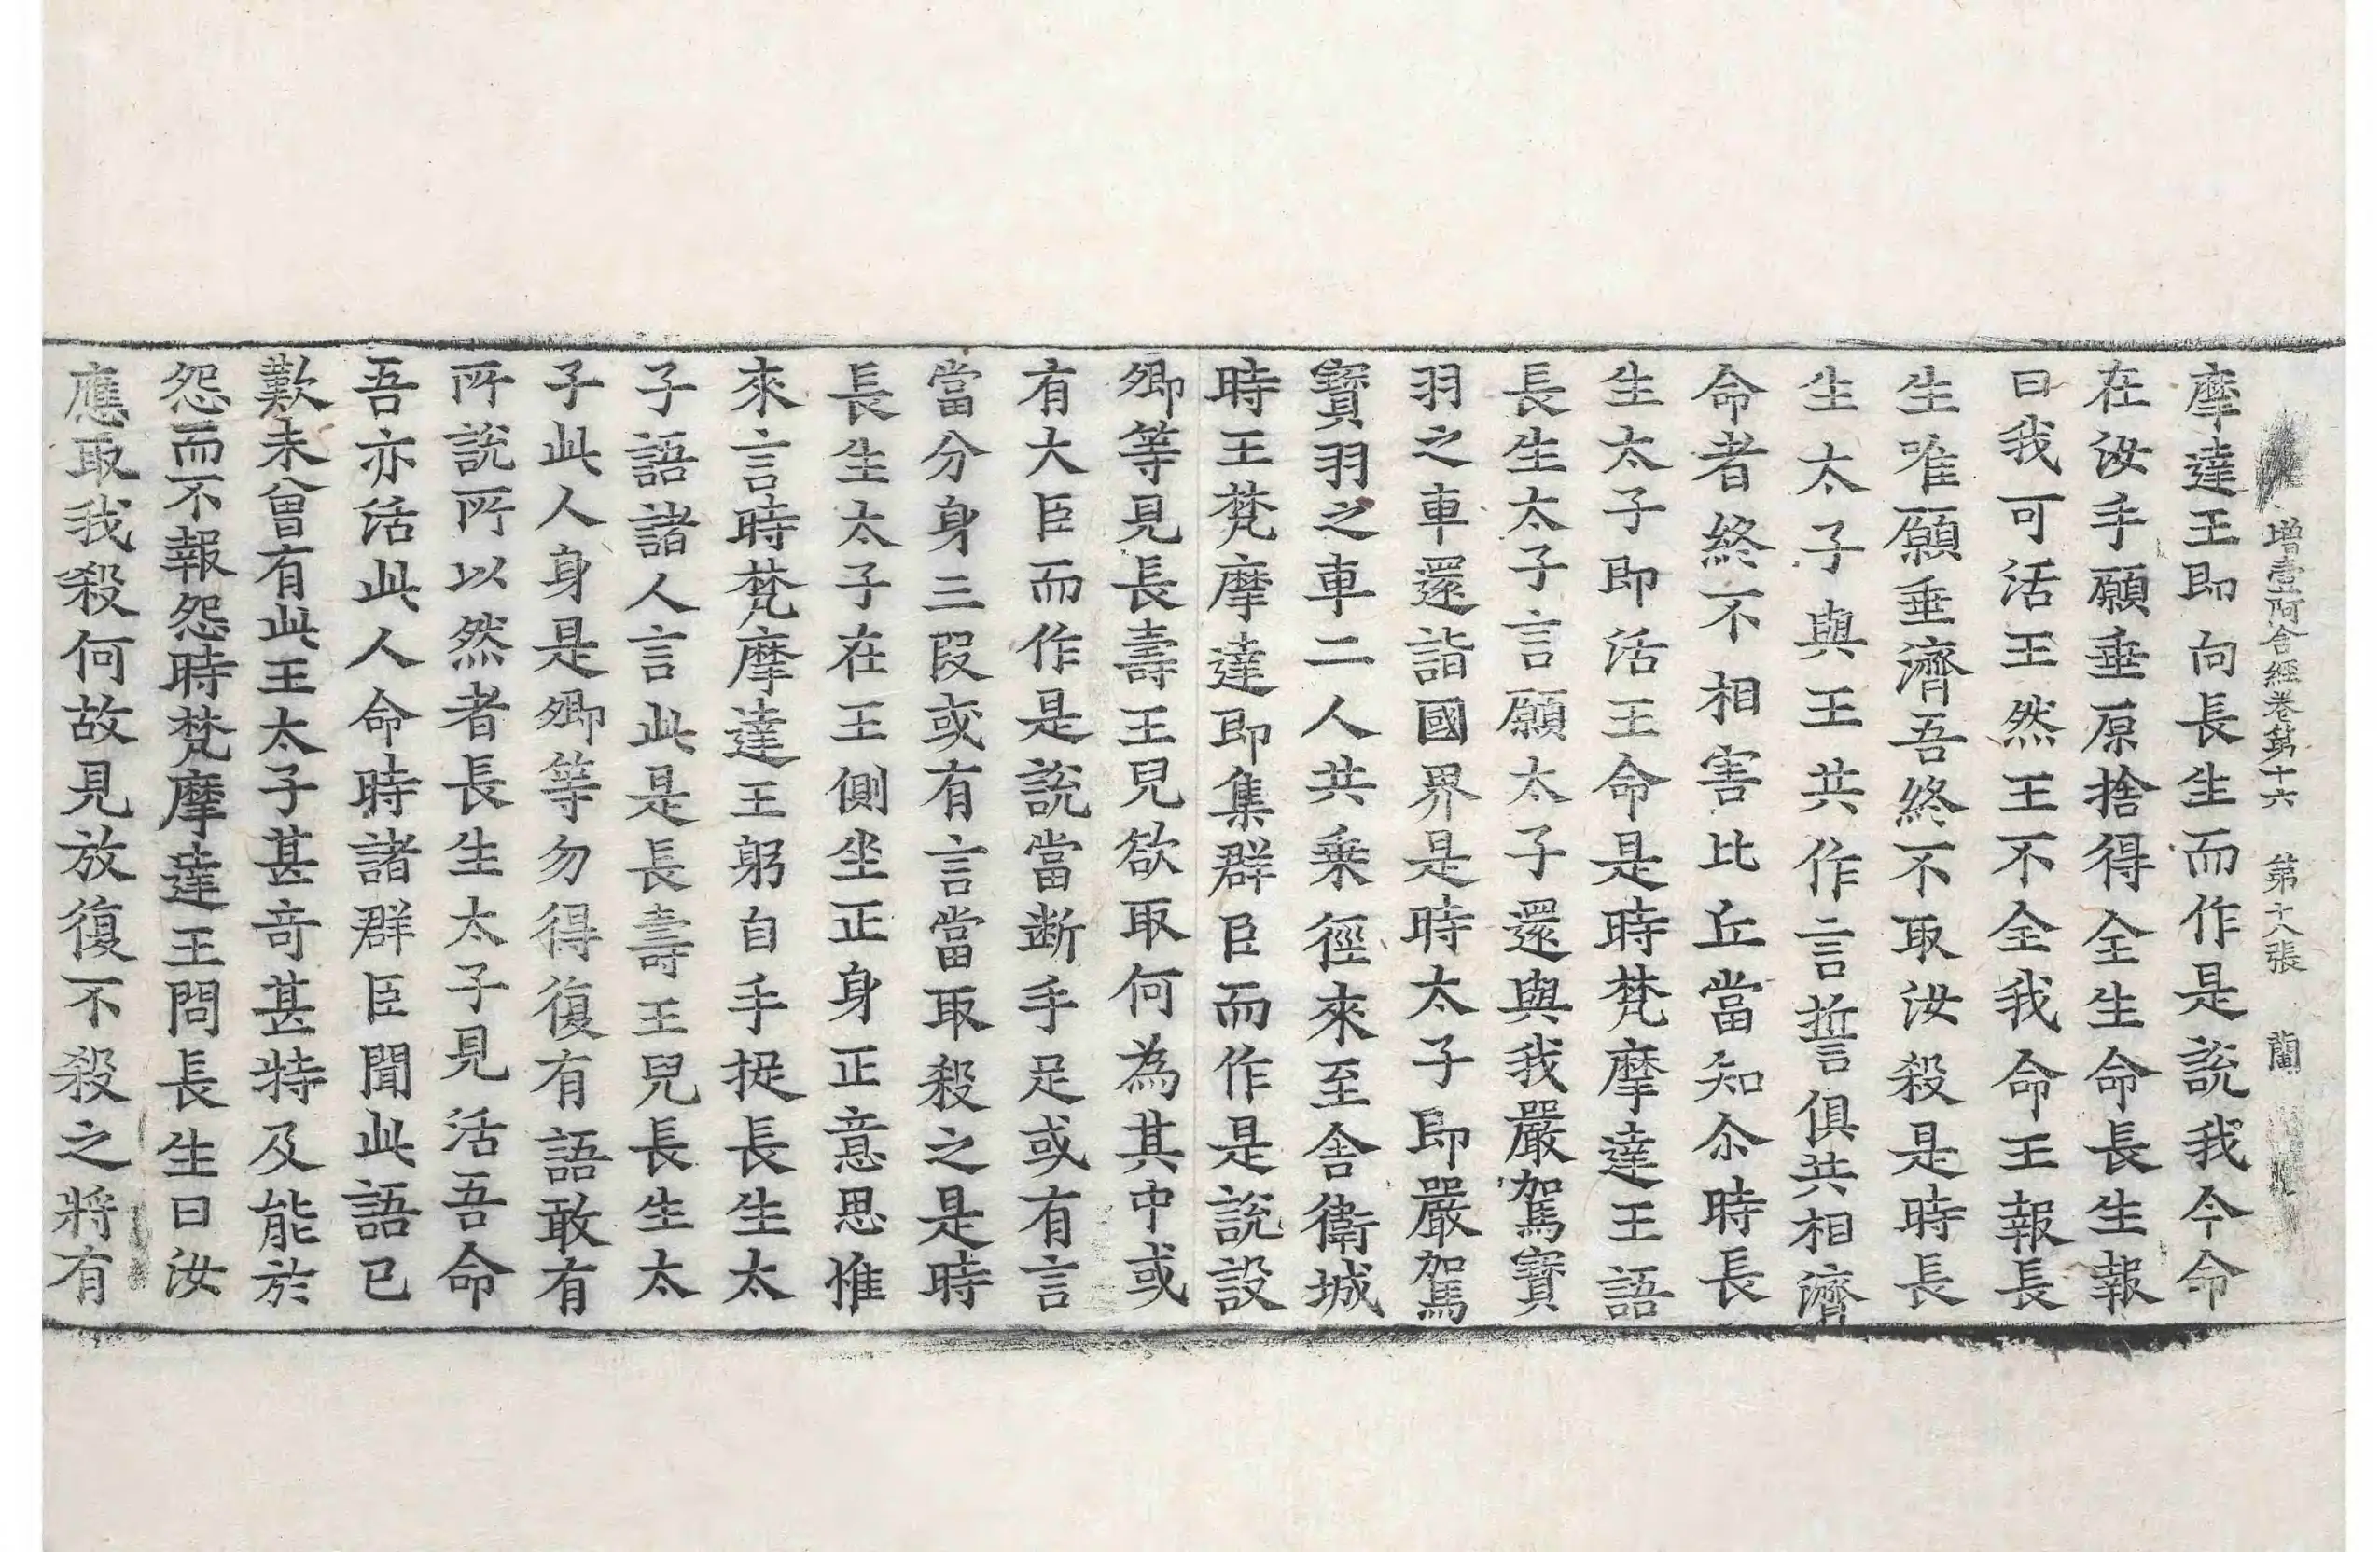 增壹阿含經卷第十六 第十八張 蘭
摩達王即向長生而作是說我今命
在汝手願垂原捨得全生命長生報
曰我可活王然王不全我命王報長
生唯願垂濟吾終不取汝殺是時長
生太子與王共作言誓俱共相濟
命者終不相害比丘當知尒時長
生太子即活王命是時梵摩達王語
長生太子言願太子還與我嚴駕寶
羽之車還詣國界是時太子即嚴駕
寶羽之車二人共乗徑來至舍衛城
時王梵摩達即集群臣而作是說設
卿等見長壽王兒欲取何為其中或
有大臣而作是說當断手足或有言
當分身三段或有言當取殺之是時
長生太子在王側坐正身正意思惟
來言時梵摩達王躬自手捉長生太
子語諸人言此是長壽王兒長生太
子此人身是卿等勿得復有語敢有
所說所以然者長生太子見活吾命
吾亦活此人命時諸群臣聞此語已
歎未曾有此王太子甚奇甚特及能於
怨而不報怨時梵摩達王問長生曰汝
應取我殺何故見放復不殺之將有